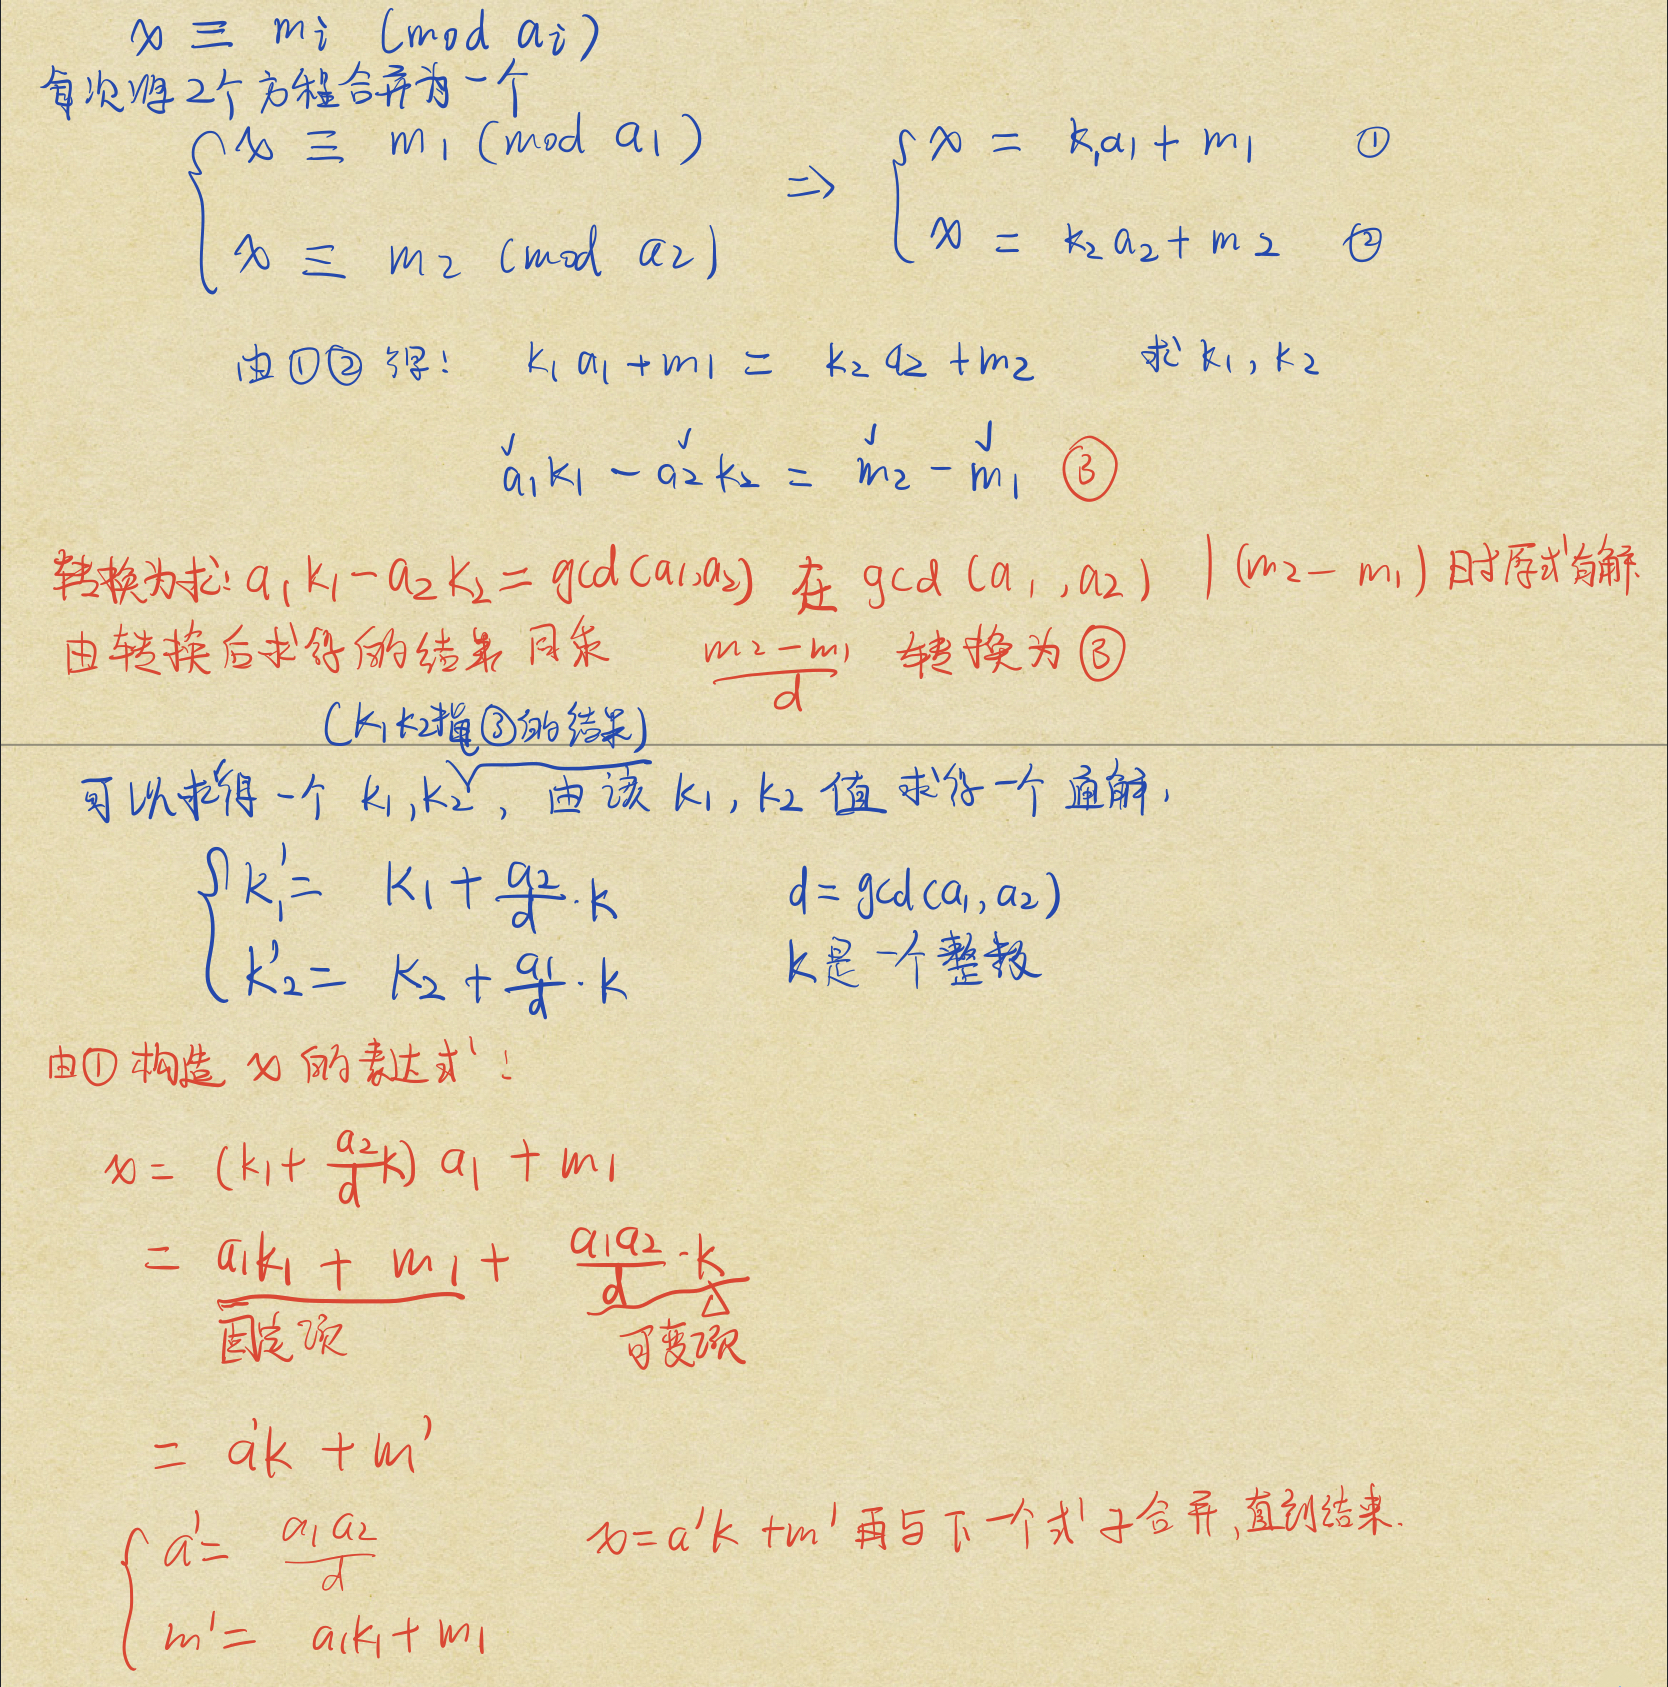 x ≡ mi (mod ai)
每次将2个方程合并为一个
x ≡ m1 (mod a1) ⇒ x = k1a1 + m1 ①
x ≡ m2 (mod a2) x = k2a2 + m2 ②
由①②得: k1a1 + m1 = k2a2 + m2 求k1, k2
a1k1 - a2k2 = m2 - m1 ③
转换为求: a1k1 - a2k2 = gcd(a1,a2) 在 gcd(a1,a2) | (m2 - m1) 时原式有解
由转换后求得的结果同乘 (m2 - m1)/d 转换为③
(k1k2指③的结果)
可以求得一个 k1,k2, 由该 k1, k2 值求得一个通解,
k1' = k1 + a2/d · k d = gcd(a1, a2)
k2' = k2 + a1/d · k k是一个整数
由①构造 x 的表达式:
x = (k1 + a2/d k) a1 + m1
= a1k1 + m1 + a1a2/d · k
固定项 可变项
= a'k + m'
a' = a1a2/d x = a'k + m' 再与下一个式子合并,直到结果.
m' = a1k1 + m1